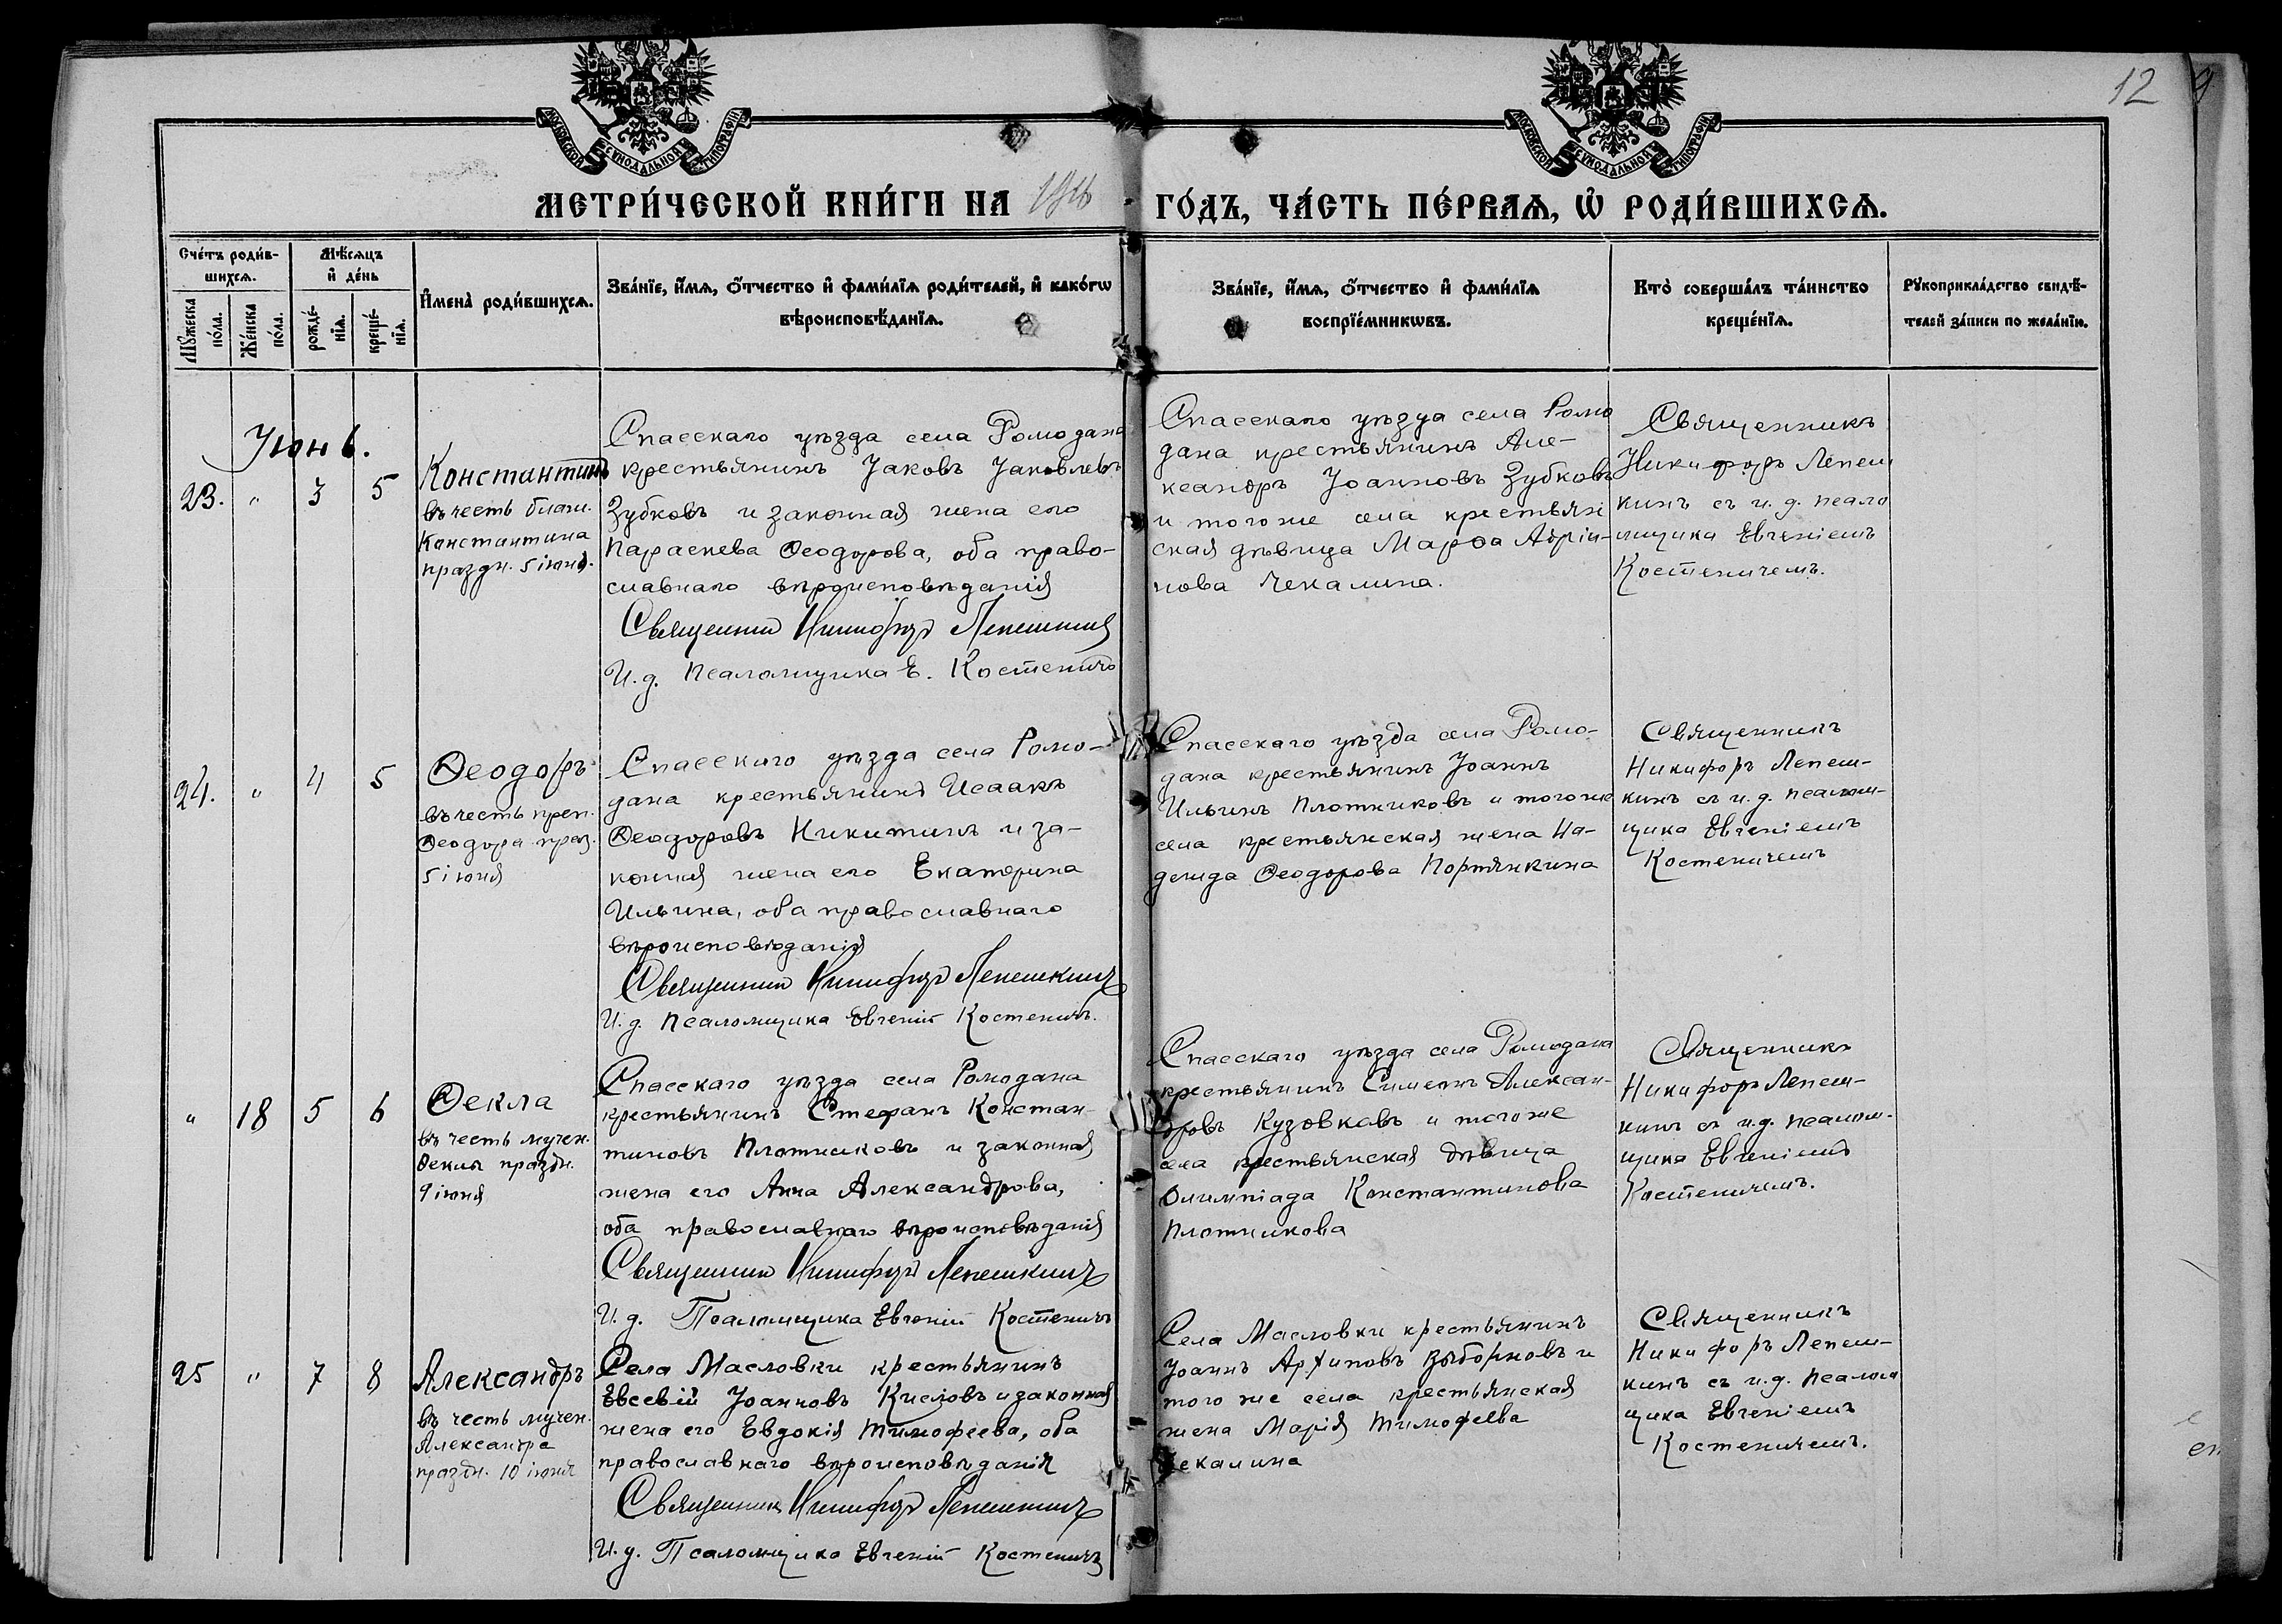 12
МОСКОВСКОЙ СѴНОДАЛЬНОЙ ТИПОГРАФІИ
МОСКОВСКОЙ СѴНОДАЛЬНОЙ ТИПОГРАФІИ
МЕТРИ́ЧЕСКОЙ КНИ́ГИ НА
ГО́ДЪ, ЧА́СТЬ ПЕ́РВАѦ, Ѽ РОДИ́ВШИХСѦ.
Сче́тъ роди́в-
шихсѧ.
Мꙋжеска
по́ла.
Же́нска
по́ла.
Мѣ́сѧцъ
и҆ де́нь
рожде́-
нїѧ.
креще́-
нїѧ.
И҆мена̀ роди́вшихсѧ.
Зва́нїе, и҆́мѧ, ѻ҆́тчество и҆ фами́лїѧ роди́телей, и҆ како́гѡ
вѣроисповѣ́данїѧ.
Зва́нїе, и҆́мѧ, ѻ҆́тчество и҆ фами́лїѧ
воспрїе́мникѡвъ.
Кто̀ соверша́лъ та́инство
креще́нїѧ.
Рꙋкоприкла́дство свидѣ́-
телей за́писи по жела́нїю.
Іюнь.
23.
"
3
5
Константинъ
въ честь благ.
Константина
праздн. 5 іюня.
Спасскаго уѣзда села Ромодана
крестьянинъ Іаковъ Іаковлевъ
Зубковъ и законная жена его
Параскева Ѳеодорова, оба право-
славнаго вѣроисповѣданія
Священникъ Никифоръ Лепешкинъ
И. д. псаломщика Е. Костеничъ
Спасскаго уѣзда села Ромо
дана крестьянинъ Але-
ксандръ Іоанновъ Зубковъ
и того же села крестьян
ская дѣвица Марѳа Адріа-
нова Чекалина.
Священникъ
Никифоръ Лепеш
кинъ съ и. д. псало
мщика Евгеніемъ
Костеничемъ.
24.
"
4
5
Ѳеодоръ
въ честь преп.
Ѳеодора праз.
5 іюня
Спасскаго уѣзда села Ромо-
дана крестьянинъ Исаакъ
Ѳеодоровъ Никитинъ и за-
конная жена его Екатерина
Ильина, оба православнаго
вѣроисповѣданія
Священникъ Никифоръ Лепешкинъ
И. д. псаломщика Евгеній Костеничъ.
Спасскаго уѣзда села Ромо-
дана крестьянинъ Іоаннъ
Ильинъ Плотниковъ и того же
села крестьянская жена На-
дежда Ѳеодорова Портянкина
Священникъ
Никифоръ Лепеш-
кинъ съ и. д. псалом-
щика Евгеніемъ
Костеничемъ
"
18
5
6
Ѳекла
въ честь мучен.
Ѳеклы праздн.
9 іюня
Спасскаго уѣзда села Ромодана
крестьянинъ Стефанъ Констан-
тиновъ Плотниковъ и законная
жена его Анна Александрова,
оба православнаго вѣроисповѣданія
Священникъ Никифоръ Лепешкинъ
И. д. Псаломщика Евгеній Костеничъ
Спасскаго уѣзда села Ромодана
крестьянинъ Симеонъ Алексан-
дровъ Кузовковъ и того же
села крестьянская дѣвица
Олимпіада Константинова
Плотникова
Священникъ
Никифоръ Лепеш-
кинъ съ и. д. псалом-
щика Евгеніемъ
Костеничемъ.
25
"
7
8
Александръ
въ честь мучен.
Александра
праздн. 10 іюня
Села Масловки крестьянинъ
Евсевій Іоанновъ Кисловъ и законная
жена его Евдокія Тимофеева, оба
православнаго вѣроисповѣданія
Священникъ Никифоръ Лепешкинъ
И. д. Псаломщика Евгеній Костеничъ
Села Масловки крестьянинъ
Іоаннъ Архиповъ Выборновъ и
того же села крестьянская
жена Марія Тимофеева
Чекалина
Священникъ
Никифоръ Лепеш-
кинъ съ и. д. псалом
щика Евгеніемъ
Костеничемъ.